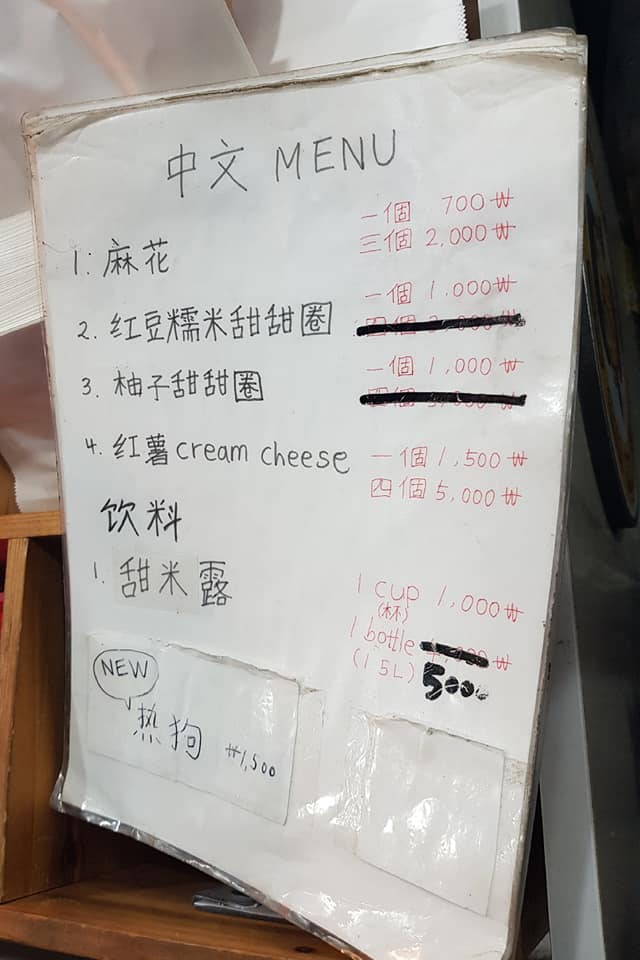 中文 MENU
1. 麻花 一個 700₩
三個 2,000₩
2. 红豆糯米甜甜圈 一個 1.000₩
3. 柚子甜甜圈 一個 1,000₩
4. 红薯 cream cheese 一個 1,500₩
四個 5,000₩
饮料
1. 甜米露 1 cup 1,000₩
(杯)
1 bottle ₩
(1 5L) 5000
NEW
热狗 ₩1,500